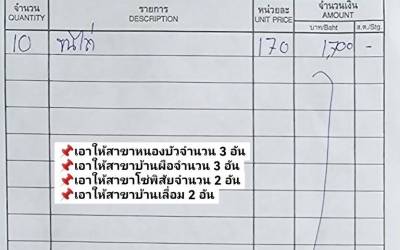 จำนวน รายการ หน่วยละ จำนวนเงิน
QUANTITY DESCRIPTION UNIT PRICE AMOUNT
บาท/Baht ส.ต./Stg.
10 170 1,700 -
📌เอาให้สาขาหนองบัวจำนวน 3 อัน
📌เอาให้สาขาบ้านผือจำนวน 3 อัน
📌เอาให้สาขาโซ่พิสัยจำนวน 2 อัน
📌เอาให้สาขาบ้านเลื่อม 2 อัน